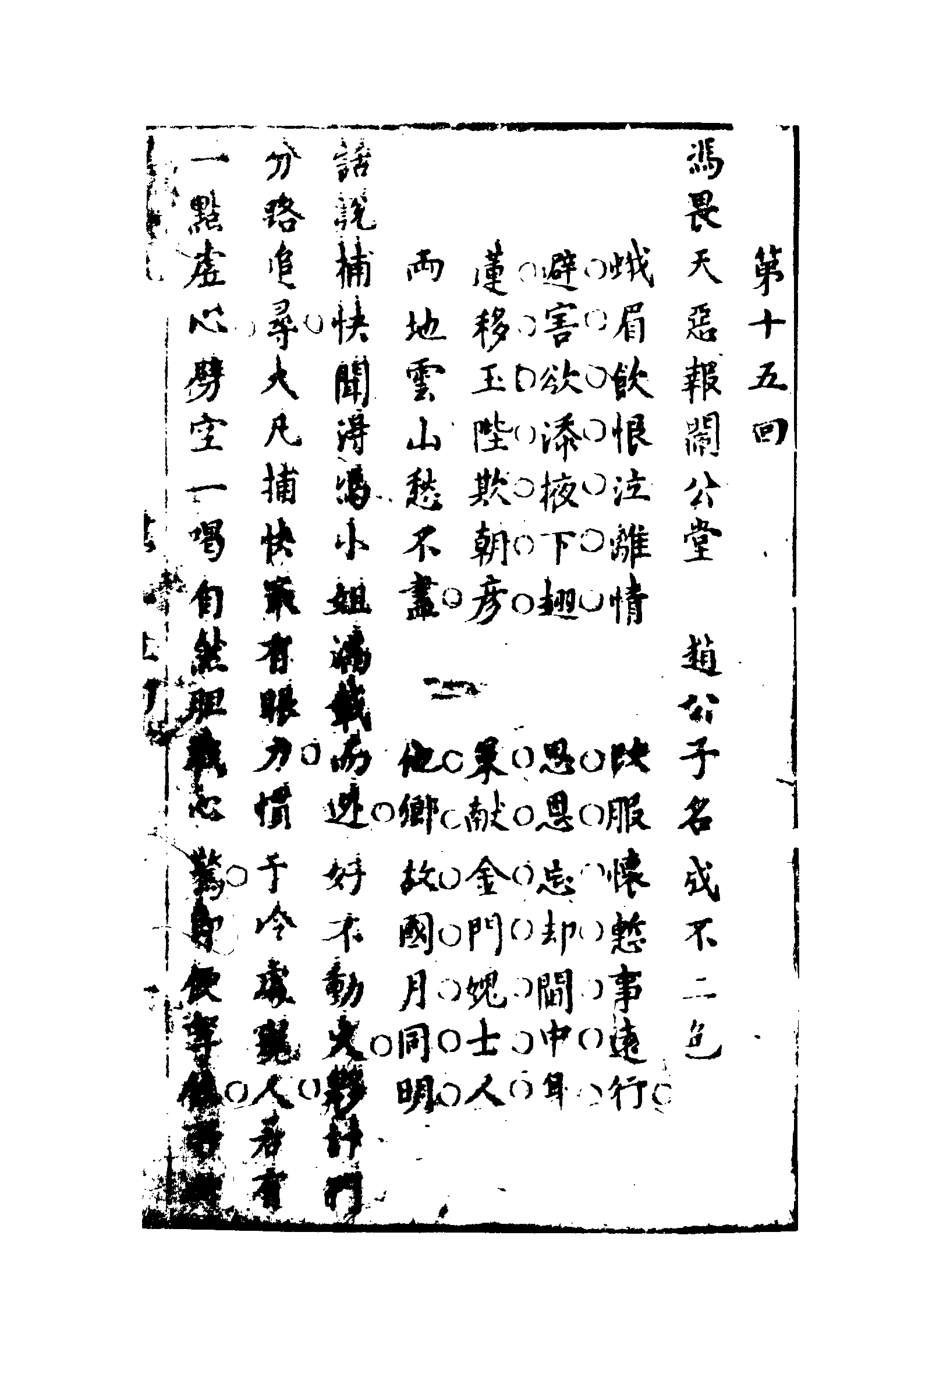 第十五回
馮畏天惡報鬧公堂　趙公子名成不二色
蛾眉飲恨泣離情　改服懷愁事遠行
避害欲添掖下翅　思恩忘却閫中身
蓮移玉陛欺朝彦　菓献金門媿士人
兩地雲山愁不盡　他鄉故國月同明
話說捕快聞得馮小姐滿載而逃好不動火夥計們
分路追尋大凡捕快最有眼力慣于冷處覷人若有
一點虚心劈空一喝自然胆戰心驚